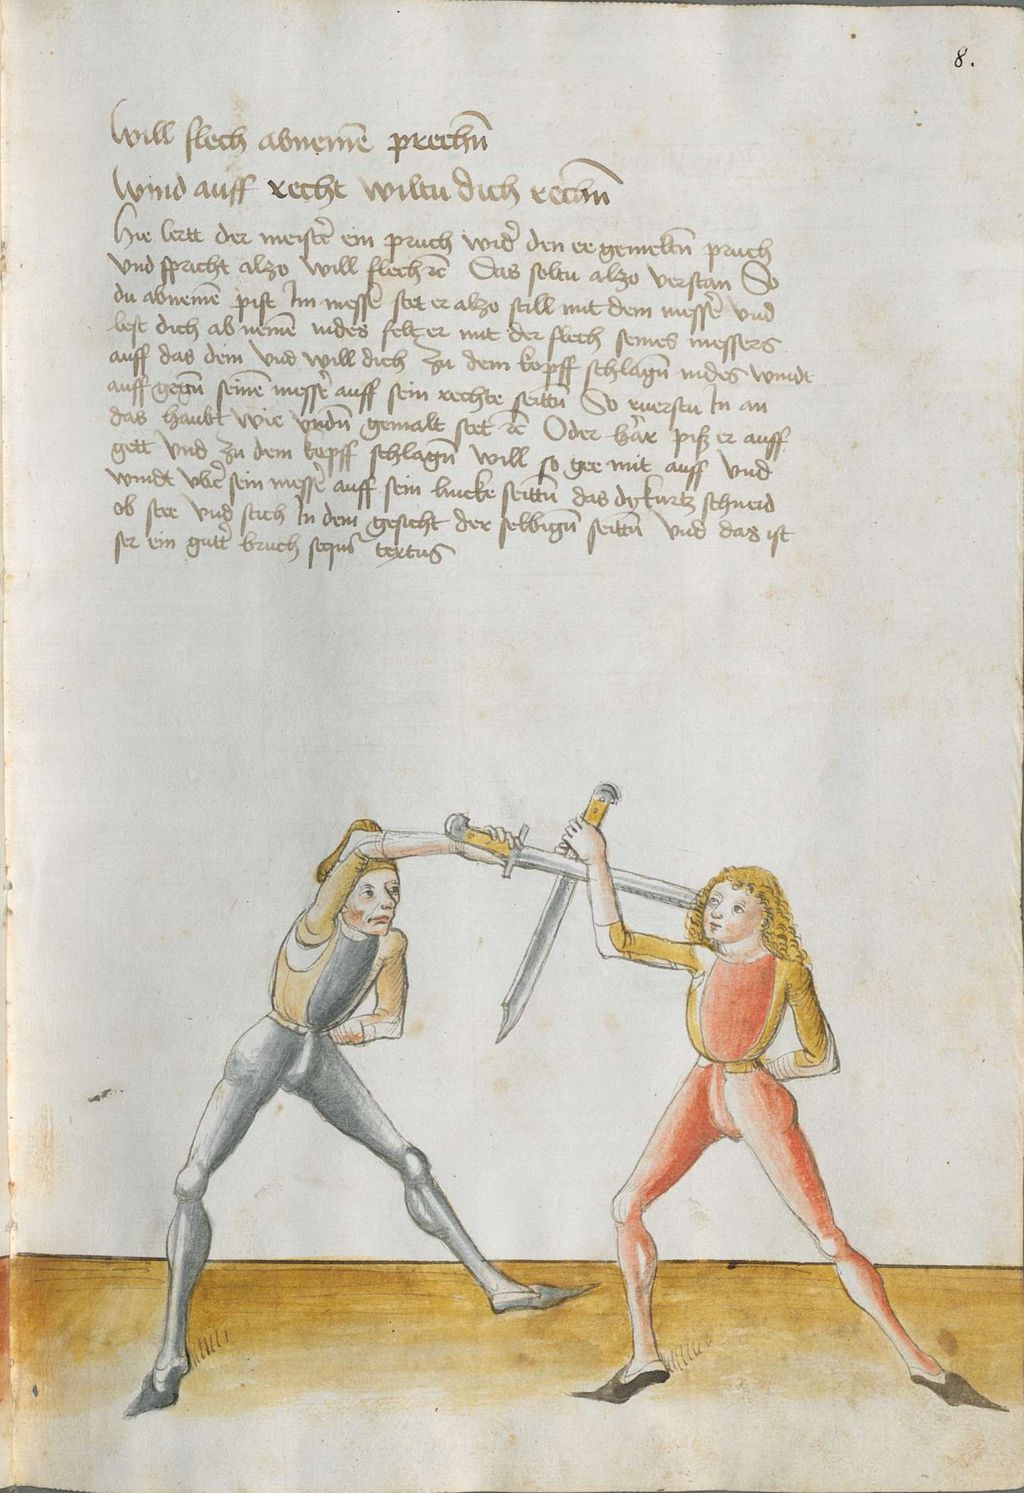 8.
Will flech abnemē prechn̄
Wind auff recht wiltu dich rechn̄
Hie lertt der meistˀ ein pruch widˀ den ee gemeltn̄ pruch
vnd spricht alzo will flech ꝛc̄ Das soltu alzo verstan So
du abnemē pist Im messˀ stet er alzo still mit dem messˀ vnd
lest dich ab nemē indes felt er mit der flech seines messers
auff das dein vnd will dich zu dem kopff schlagn̄ indes windt
auff gegn̄ seinē messˀ auff sein rechte seittn̄ So ruerstu In an
das haubt wie vndn̄ gemalt stet ꝛc̄ Oder har piß er auff
gett vnd zu dem kopff schlagn̄ will so gee mit auff vnd
windt vbˀ sein messˀ auff sein lincke seittn̄ das dy kurtz schneid
ob stee vnd stich In dem gesicht der selbign̄ seittn̄ vnd das ist
ser ein guttˀ bruch sequiˀ textus